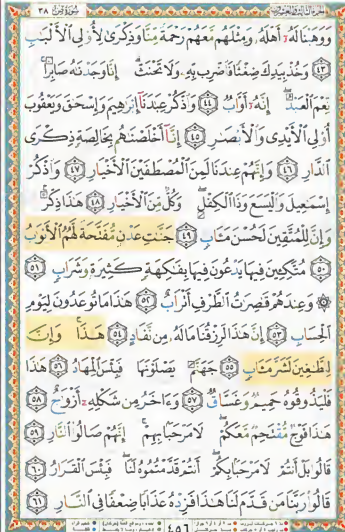 الجزء الثالث والعشرون
سورة ص ٣٨
وَوَهَبْنَا لَهُۥٓ أَهْلَهُۥ وَمِثْلَهُم مَّعَهُمْ رَحْمَةً مِّنَّا وَذِكْرَىٰ لِأُو۟لِى ٱلْأَلْبَٰبِ
﴿٤٣﴾ وَخُذْ بِيَدِكَ ضِغْثًا فَٱضْرِب بِّهِۦ وَلَا تَحْنَثْ إِنَّا وَجَدْنَٰهُ صَابِرًا
نِّعْمَ ٱلْعَبْدُ إِنَّهُۥٓ أَوَّابٌ ﴿٤٤﴾ وَٱذْكُرْ عِبَٰدَنَآ إِبْرَٰهِيمَ وَإِسْحَٰقَ وَيَعْقُوبَ
أُو۟لِى ٱلْأَيْدِى وَٱلْأَبْصَٰرِ ﴿٤٥﴾ إِنَّآ أَخْلَصْنَٰهُم بِخَالِصَةٍ ذِكْرَى
ٱلدَّارِ ﴿٤٦﴾ وَإِنَّهُمْ عِندَنَا لَمِنَ ٱلْمُصْطَفَيْنَ ٱلْأَخْيَارِ ﴿٤٧﴾ وَٱذْكُرْ
إِسْمَٰعِيلَ وَٱلْيَسَعَ وَذَا ٱلْكِفْلِ وَكُلٌّ مِّنَ ٱلْأَخْيَارِ ﴿٤٨﴾ هَٰذَا ذِكْرٌ
وَإِنَّ لِلْمُتَّقِينَ لَحُسْنَ مَـَٔابٍ ﴿٤٩﴾ جَنَّٰتِ عَدْنٍ مُّفَتَّحَةً لَّهُمُ ٱلْأَبْوَٰبُ
﴿٥٠﴾ مُتَّكِـِٔينَ فِيهَا يَدْعُونَ فِيهَا بِفَٰكِهَةٍ كَثِيرَةٍ وَشَرَابٍ ﴿٥١﴾
۞ وَعِندَهُمْ قَٰصِرَٰتُ ٱلطَّرْفِ أَتْرَابٌ ﴿٥٢﴾ هَٰذَا مَا تُوعَدُونَ لِيَوْمِ
ٱلْحِسَابِ ﴿٥٣﴾ إِنَّ هَٰذَا لَرِزْقُنَا مَا لَهُۥ مِن نَّفَادٍ ﴿٥٤﴾ هَٰذَا وَإِنَّ
لِلطَّٰغِينَ لَشَرَّ مَـَٔابٍ ﴿٥٥﴾ جَهَنَّمَ يَصْلَوْنَهَا فَبِئْسَ ٱلْمِهَادُ ﴿٥٦﴾ هَٰذَا
فَلْيَذُوقُوهُ حَمِيمٌ وَغَسَّاقٌ ﴿٥٧﴾ وَءَاخَرُ مِن شَكْلِهِۦٓ أَزْوَٰجٌ ﴿٥٨﴾
هَٰذَا فَوْجٌ مُّقْتَحِمٌ مَّعَكُمْ لَا مَرْحَبًۢا بِهِمْ إِنَّهُمْ صَالُوا۟ ٱلنَّارِ ﴿٥٩﴾
قَالُوا۟ بَلْ أَنتُمْ لَا مَرْحَبًۢا بِكُمْ أَنتُمْ قَدَّمْتُمُوهُ لَنَا فَبِئْسَ ٱلْقَرَارُ ﴿٦٠﴾
قَالُوا۟ رَبَّنَا مَن قَدَّمَ لَنَا هَٰذَا فَزِدْهُ عَذَابًا ضِعْفًا فِى ٱلنَّارِ ﴿٦١﴾
٤٥٦